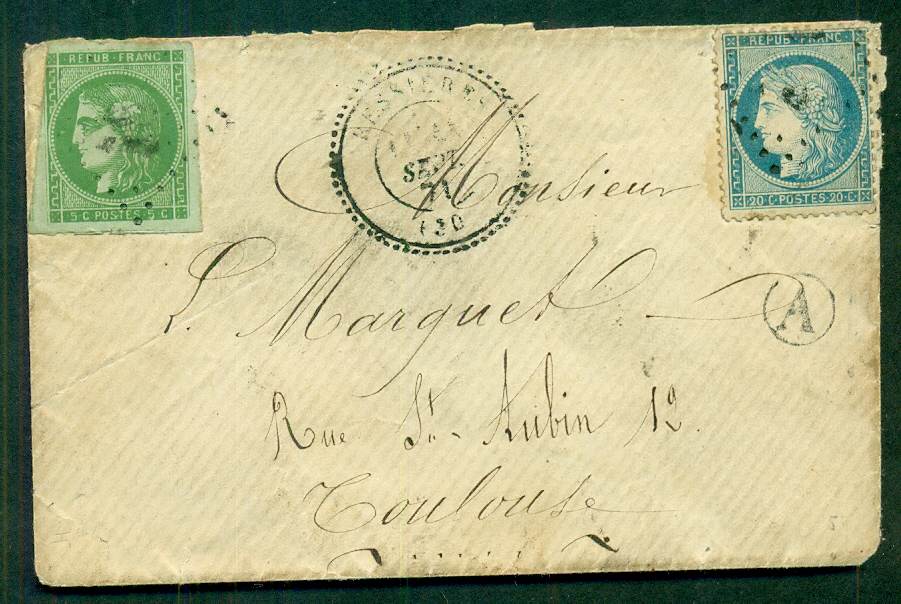 REPUB·FRANC
5 C POSTES 5 C
REPUB·FRANC
20·C·POSTES·20·C
BESSIERES
SEPT
71
(30)
Monsieur
L. Marguet
A
Rue St. Aubin 12.
Toulouse